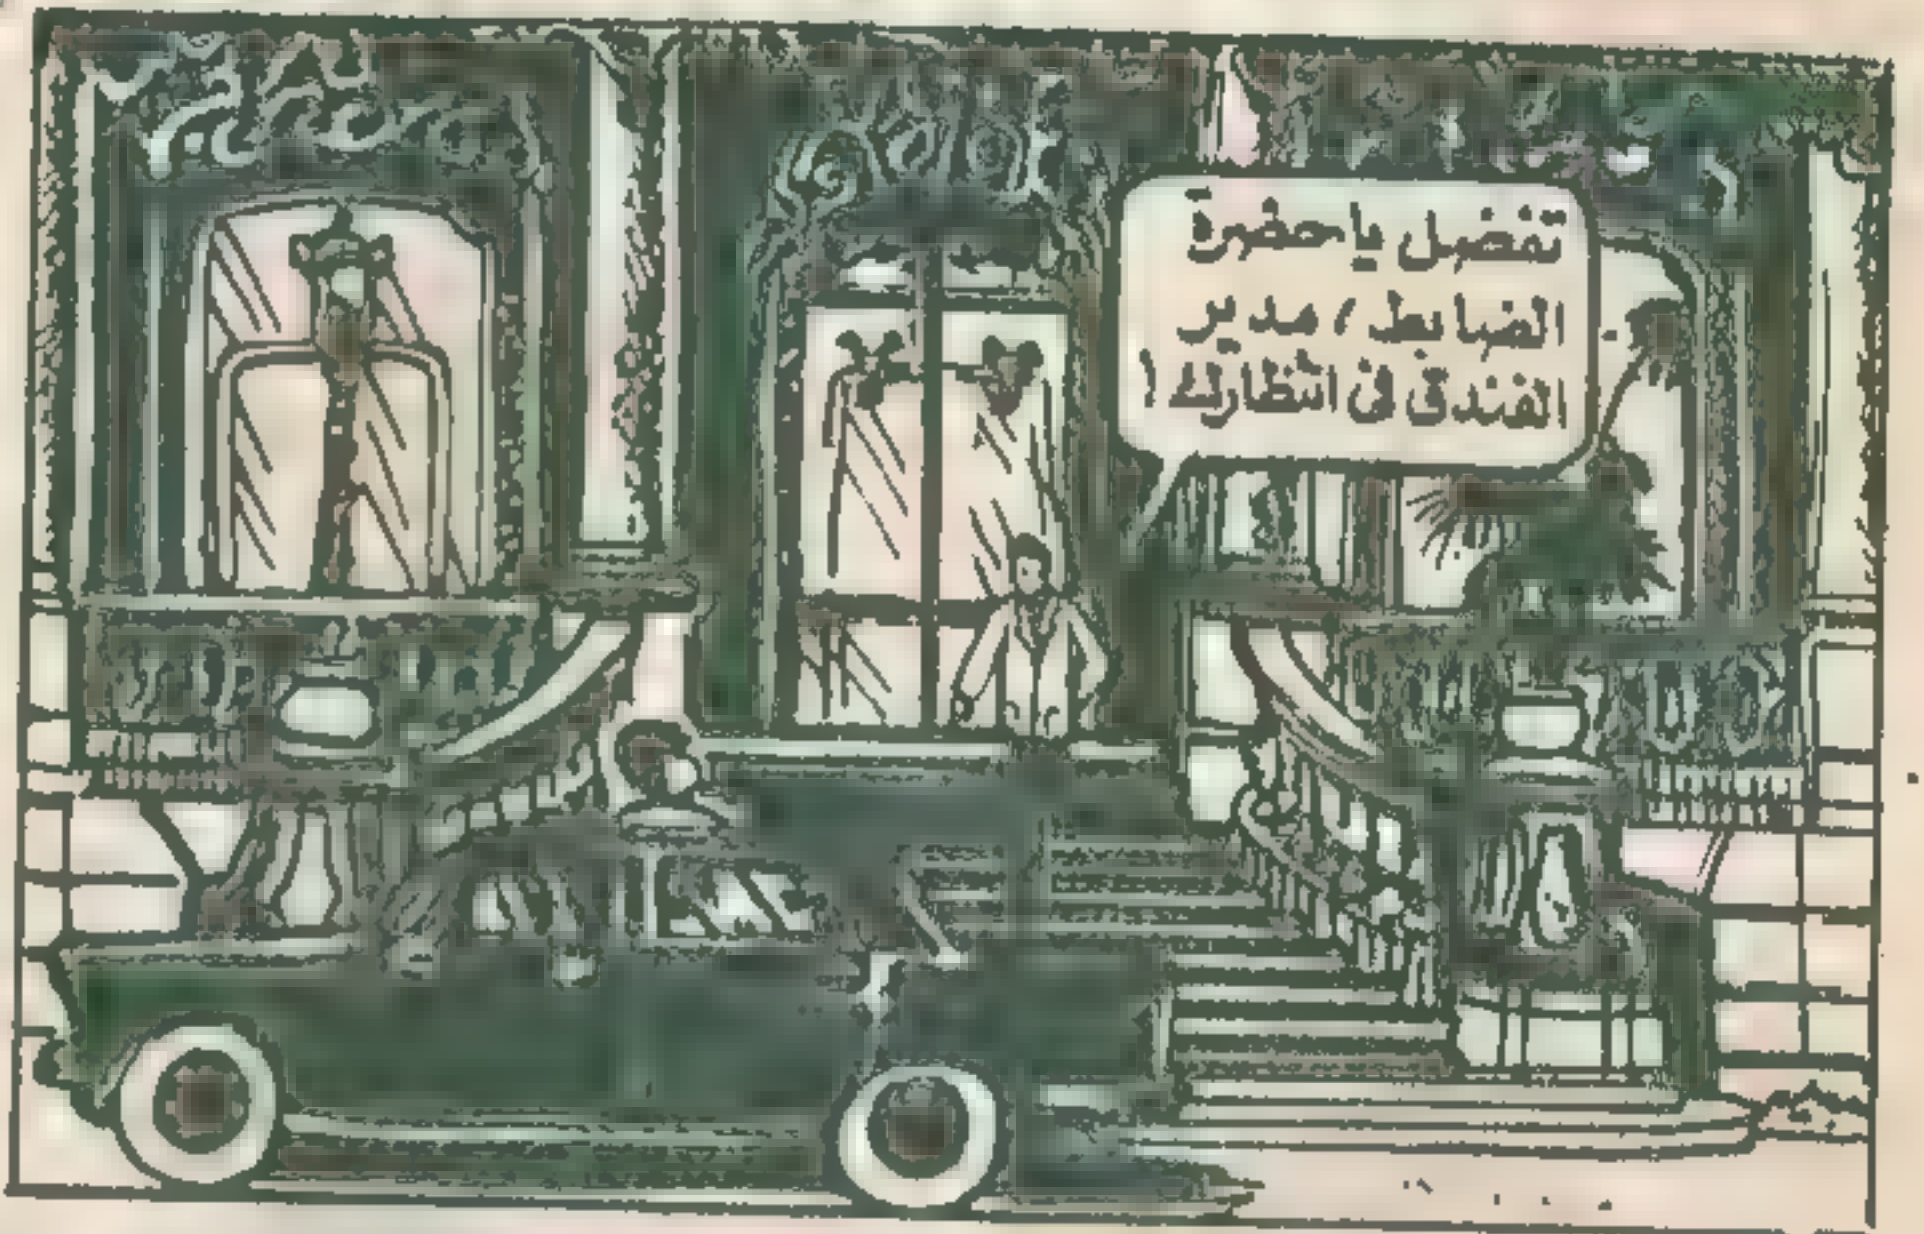 تفضل يا حضرة
الضابط ، مدير
الفندق فى انتظارك !